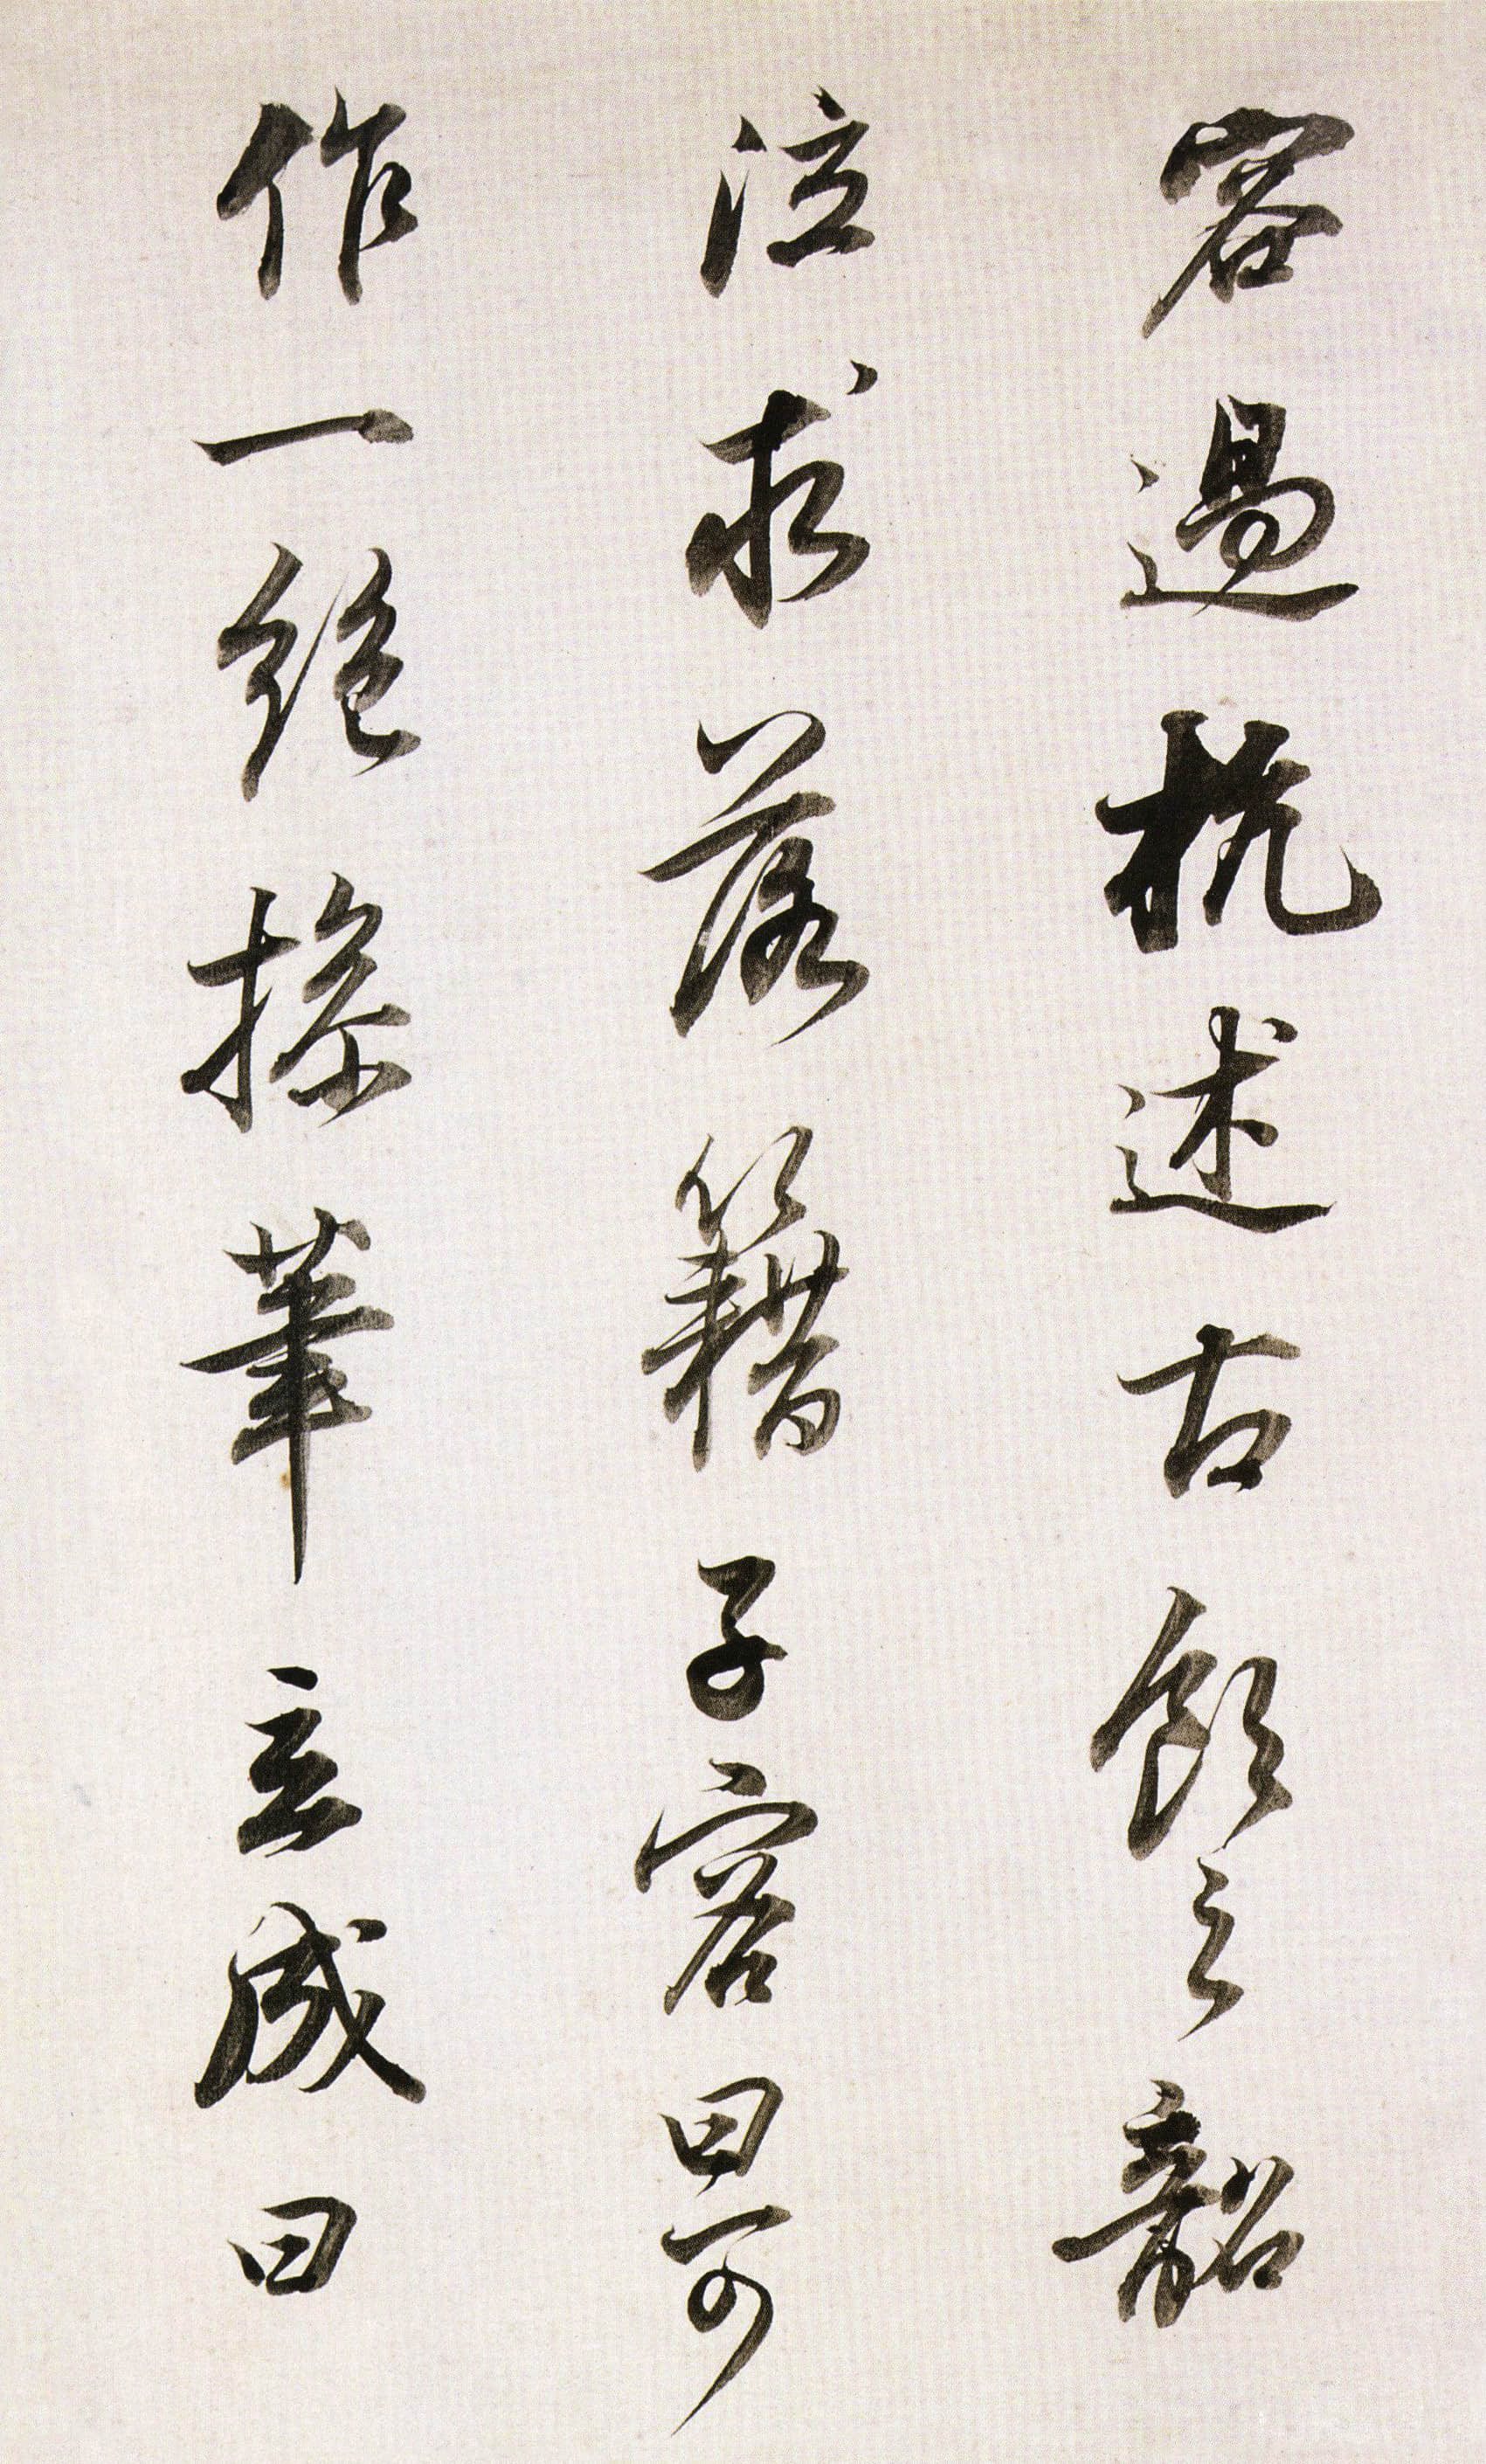 容過杭述古飲之韶
泣求落籍子容曰可
作一絶援筆立成曰